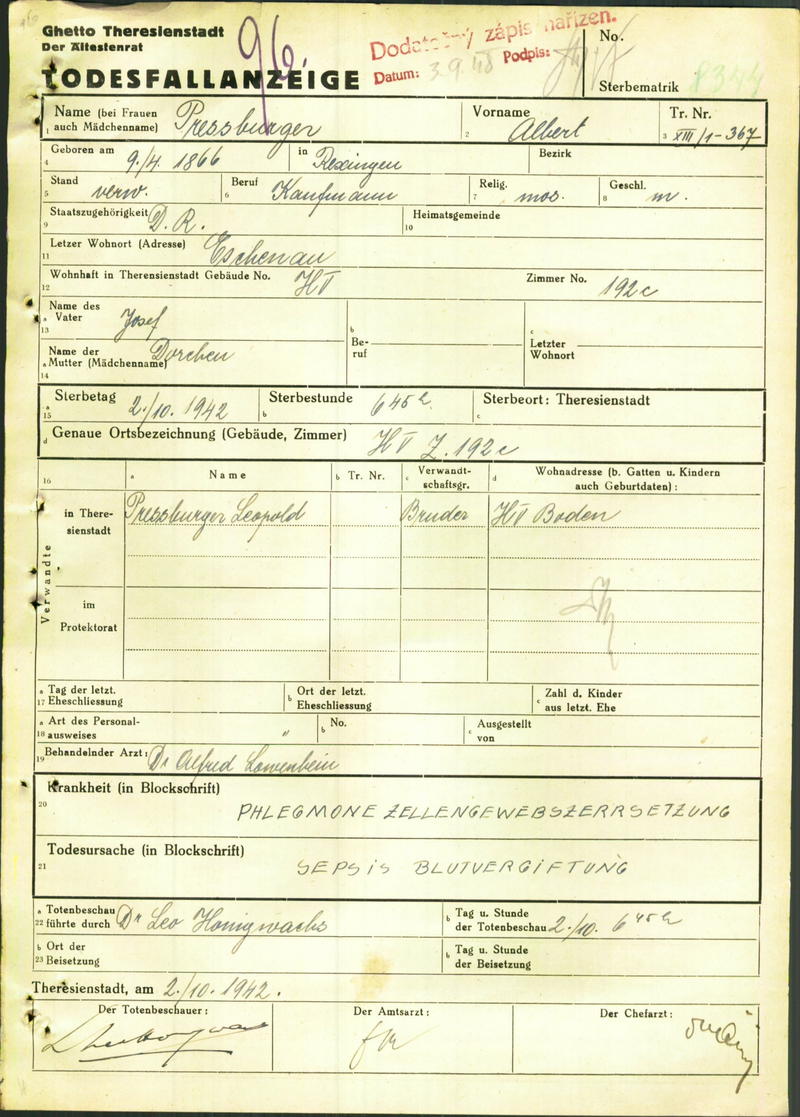 Ghetto Theresienstadt
Der Ältestenrat
TODESFALLANZEIGE
96.
Dodatečný zápis nařízen.
Datum: 3.9.48 Podpis:
No.
Sterbematrik 8344
Name (bei Frauen auch Mädchenname) Pressburger
1
Vorname Albert
2
Tr. Nr.
3 XIII/1-367
Geboren am 9./4. 1866 in Rexingen Bezirk
4
Stand verw. Beruf Kaufmann Relig. mos. Geschl. m.
5 6 7 8
Staatszugehörigkeit D. R. Heimatsgemeinde
9 10
Letzer Wohnort (Adresse) Eschenau
11
Wohnhaft in Therensienstadt Gebäude No. HV Zimmer No. 192c
12
Name des
a Vater Josef
13
b
Be-
ruf
c
Letzter
Wohnort
Name der Dorchen
a Mutter (Mädchenname)
14
a Sterbetag 2./10. 1942 Sterbestunde 6 45 h Sterbeort: Theresienstadt
15 b c
d Genaue Ortsbezeichnung (Gebäude, Zimmer) HV Z. 192c
16 a Name b Tr. Nr. c Verwandt-
schaftsgr. d Wohnadresse (b. Gatten u. Kindern
auch Geburtdaten) :
Verwandte
in There-
sienstadt
Pressburger Leopold Bruder HV Boden
im
Protektorat
a Tag der letzt.
17 Eheschliessung
b Ort der letzt.
Eheschliessung
c Zahl d. Kinder
aus letzt. Ehe
a Art des Personal-
18 ausweises "
b No.
c Ausgestellt
von
Behandelnder Arzt: Dr Alfred Löwenbein
19
Krankheit (in Blockschrift)
20
PHLEGMONE ZELLENGEWEBSZERRSETZUNG
Todesursache (in Blockschrift)
21
SEPSIS BLUTVERGIFTUNG
a Totenbeschau
22 führte durch Dr Leo Honigwachs
b Tag u. Stunde
der Totenbeschau 2./10. 6 45 h
b Ort der
23 Beisetzung
b Tag u. Stunde
der Beisetzung
Theresienstadt, am 2./10. 1942.
Der Totenbeschauer : Der Amtsarzt : Der Chefarzt :